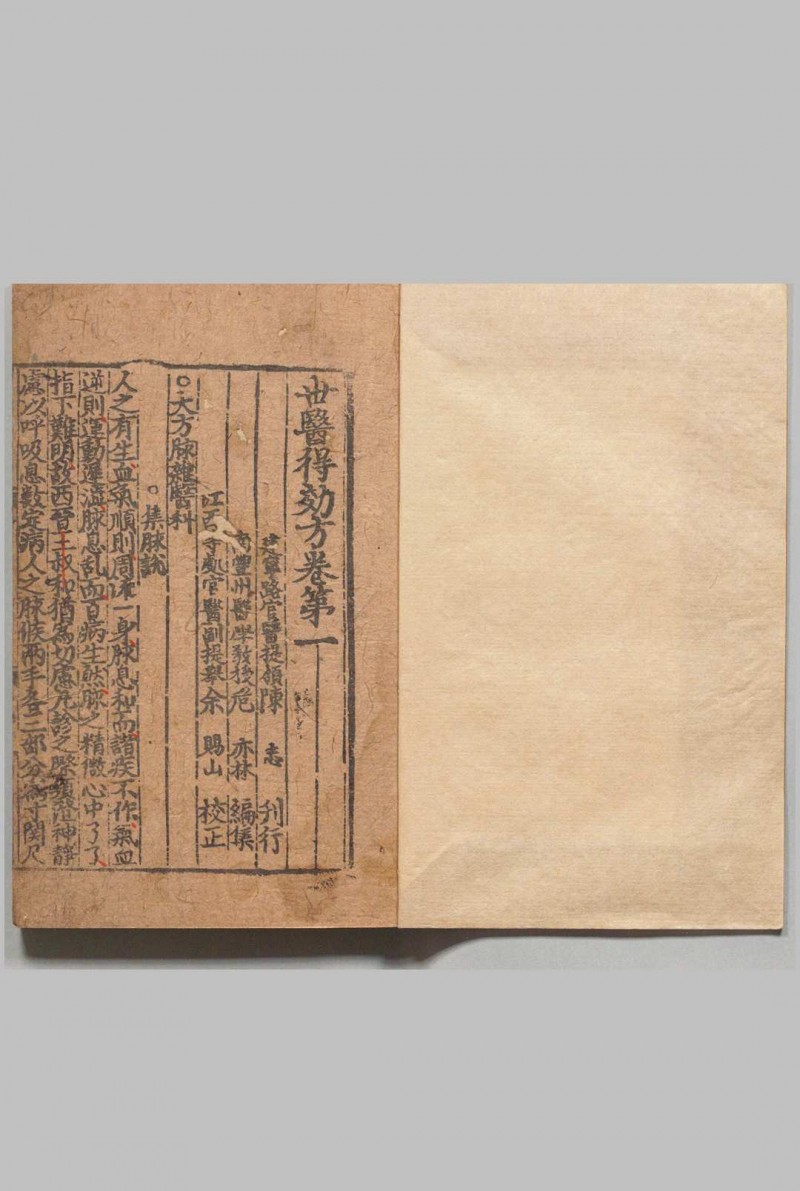 世醫得効方卷第一
建寧路官醫提領陳 志 刋行
南豐州醫學教授危 亦林 編集
江西等處官醫副提舉余 賜山 校正
○大方脉雜醫科
○集脉說
人之有生血氣順則周流一身脉息和而諸疾不作氣血
逆則運動遲澁脉息乱而百病生然脉之精微心中了了
指下難明故西晉王叔和猶為切慮凡診之際須澄神靜
慮以呼吸息數定病人之脉候兩手各三部分為寸関尺